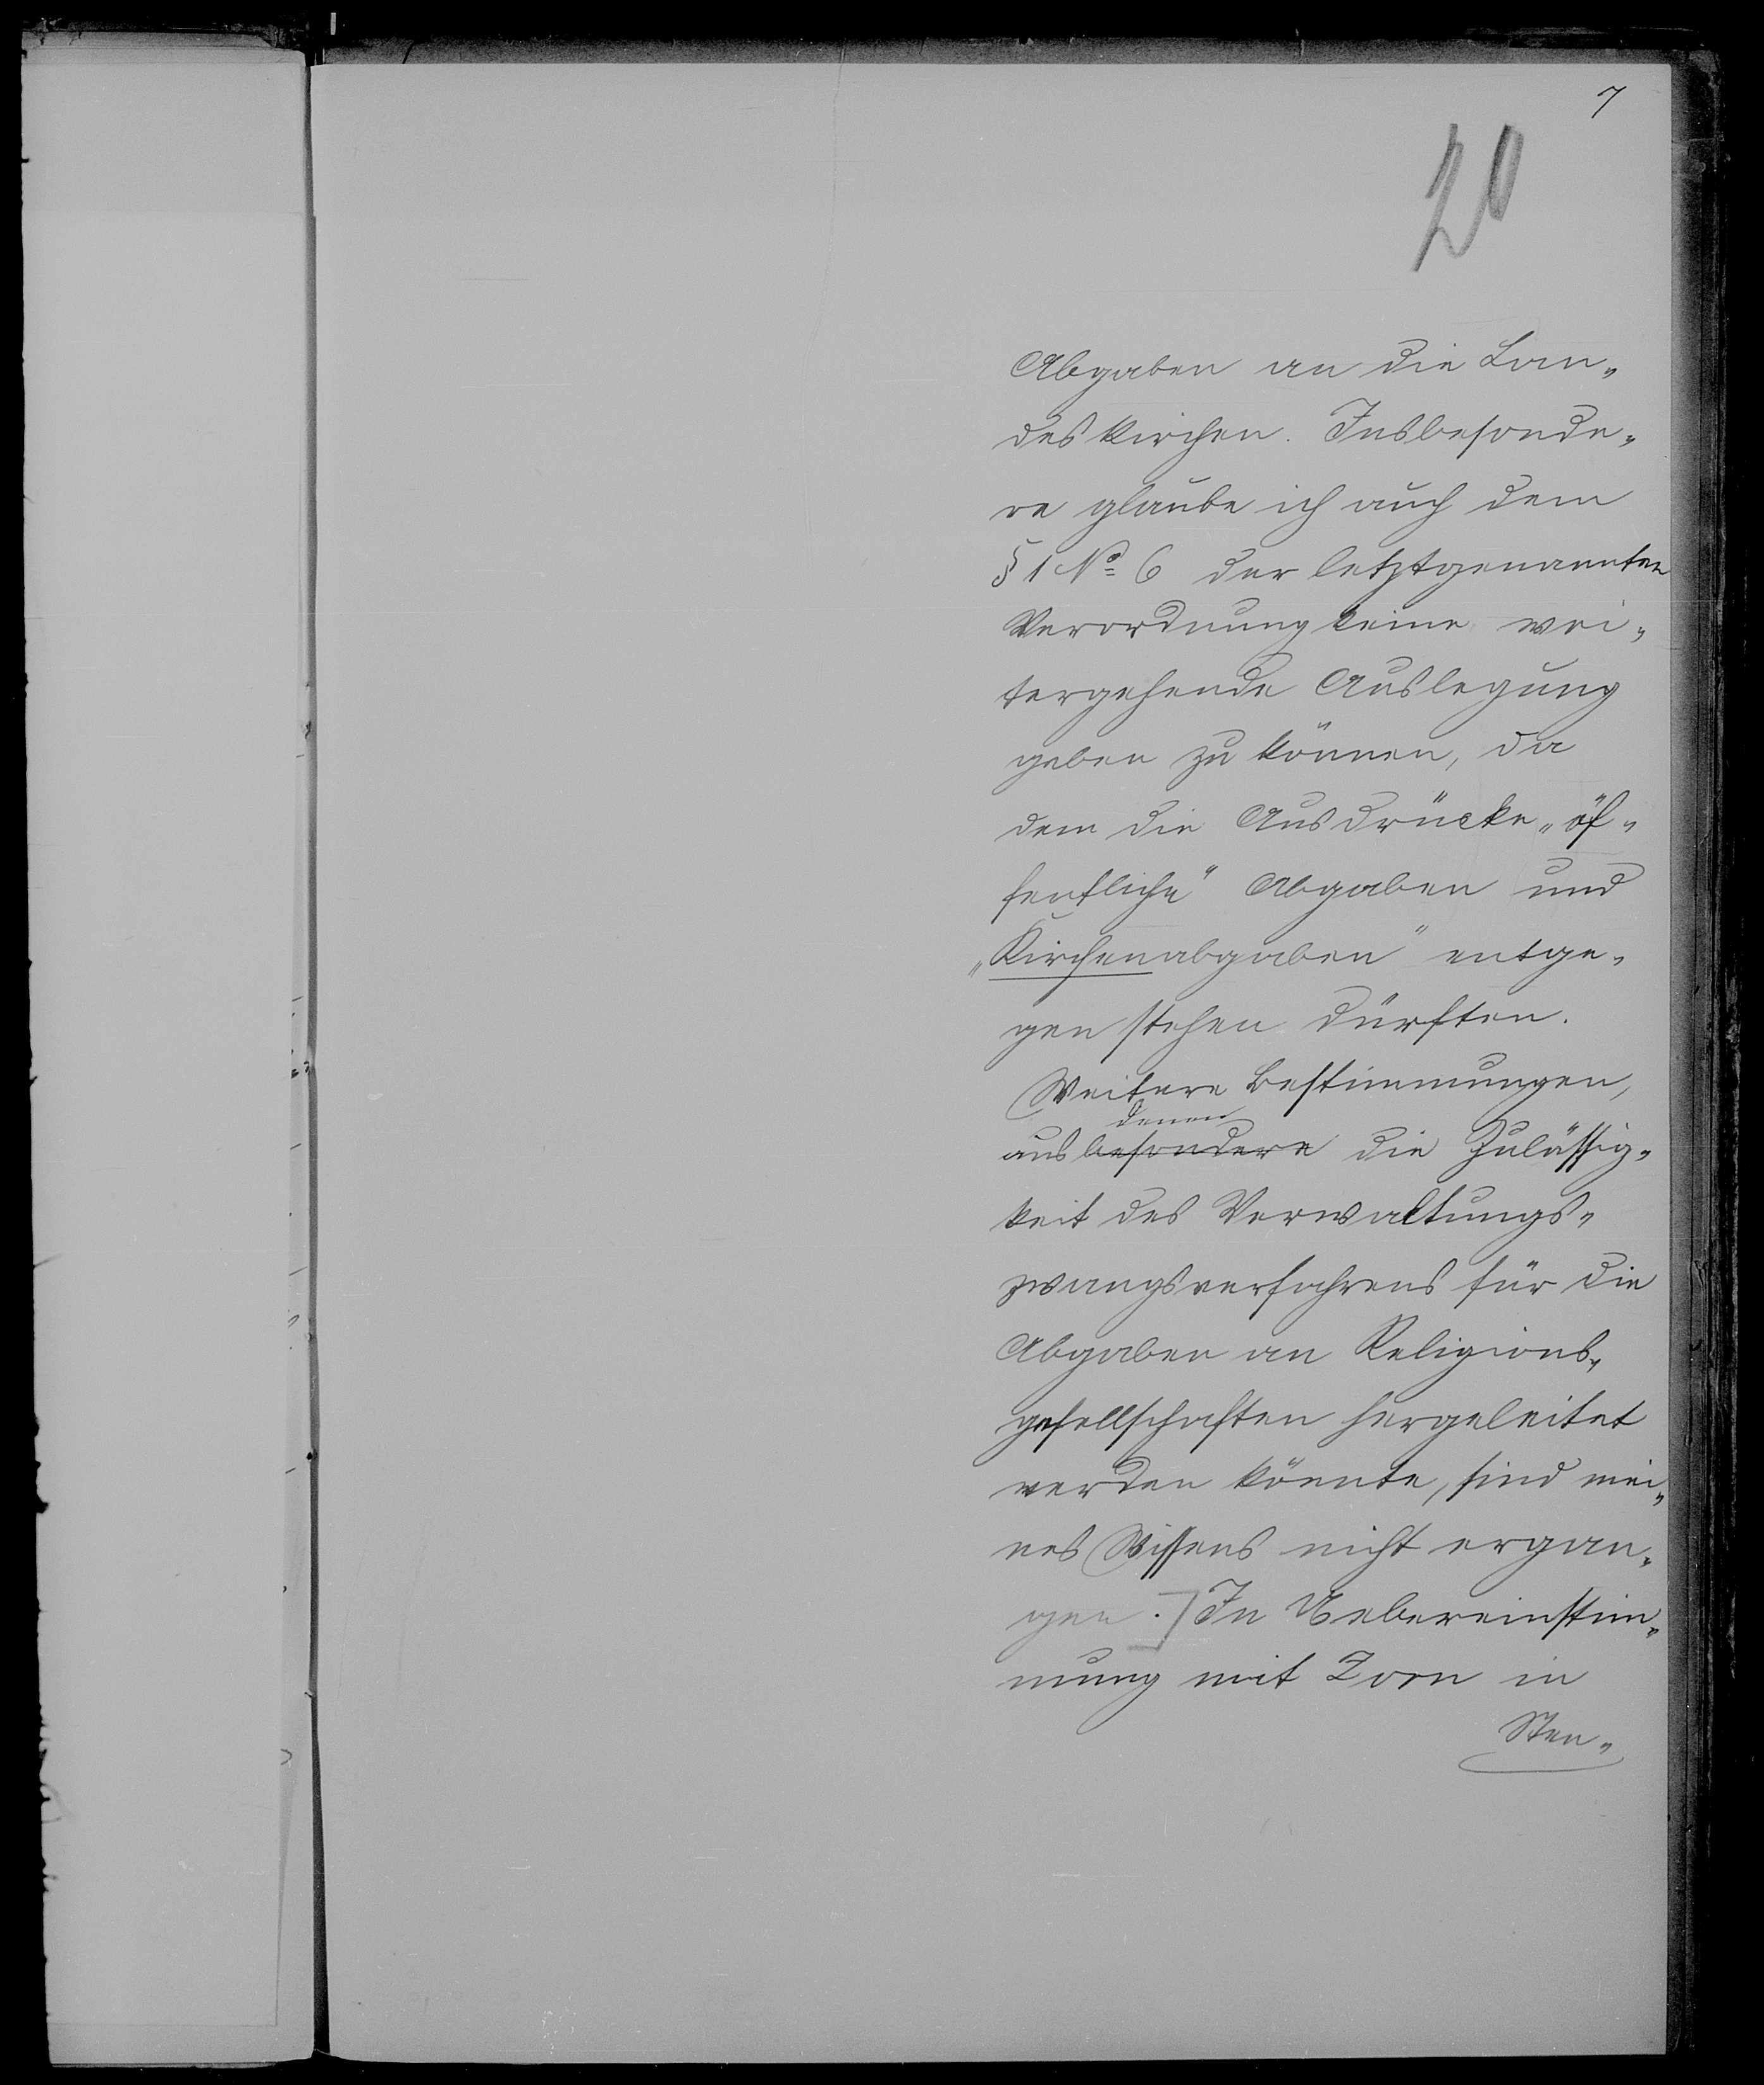 7
20
Abgaben an die Lan„
deskirchen. Insbesonde„
re glaube ich auch dem
§ 1 No 6 der letztgenannten
Verordnung keine wei„
tergehende Auslegung
geben zu können, da
dem die Ausdrücke „öf„
fentliche" Abgaben und
„Kirchenabgaben" entge„
gen stehen dürften.
Weitere Bestimmungen,
denen
aus besondere die Zulässig„
keit des Verwaltungs„
zwangsverfahrens für die
Abgaben an Religions„
gesellschaften hergeleitet
werden könnte, sind mei„
nes Wissens nicht ergan„
gen.] In Uebereinstim„
mung mit Zorn in
Sten„